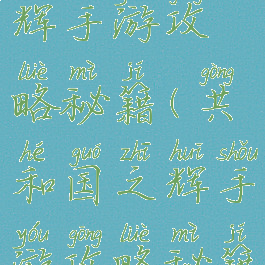 辉手游攻
lüè mì jí gòng
略秘籍(共
hé guó zhī huī shǒu
和国之辉手
yóu gōng lüè mì jí
游攻略秘籍